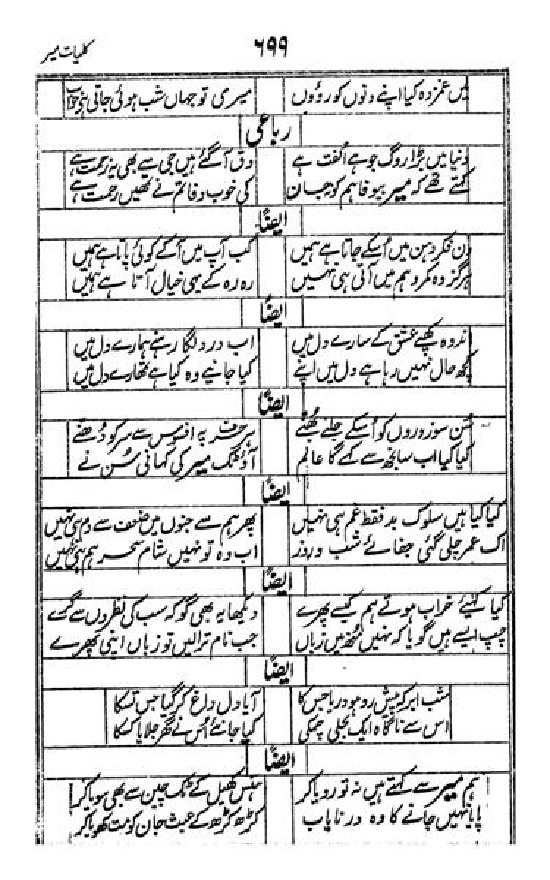 کلیات میر
۶۹۹
میں غمزدہ کیا اپنے دنوں کو روؤں میری تو جہاں شب ہوئی جاتی
رباعی
دنیا میں بڑا روگ جو ہے الفت ہے دق آگئے ہیں جی سے بھی یہ زحمت ہے
کہتے تھے کہ میر بیوفا ہم کو جان کی خوب وفا تم نے تمھیں رحمت ہے
ایضاً
دن فکر دہن میں اسکے جاتا ہے ہمیں کب آپ میں آکے کوئی پاتا ہے ہمیں
ہرگز وہ کمر وہم میں آتی ہی نہیں رہ رہ کے یہی خیال آتا ہے ہمیں
ایضاً
کے سارے دل میں اب درد لگا رہنے ہمارے دل میں
کچھ حال نہیں رہا ہے دل میں اپنے کیا جانیے وہ کیا ہے تمھارے دل میں
ایضاً
سن سوز دروں کو اسکے جلیے بھنیے ہر حرف پہ افسوس سے سر کو دھنیے
کیا کیا اب سانجھ سے کہے گا عالم آؤ ٹک میر کی کہانی سن نے
ایضاً
کیا کیا ہیں سلوک بد فقط غم ہی نہیں پھر ہم سے جنوں میں ضعف سے دم ہی نہیں
اک عمر چلی گئی جفائے شب و روز اب وہ تو نہیں شام سحر ہم ہی نہیں
ایضاً
کیا کہیے خراب ہوتے ہم کیسے پھرے دیکھا یہ بھی گو کہ سب کی نظروں سے گرے
چپ ایسے ہیں گویا کہ نہیں منھ میں زباں جب نام ترا لیں تو زباں اپنی پھرے
ایضاً
شب ابر کہ پیش رو ہو دریا جس کا آیا دل داغ کر گیا جس تسکا
اس سے ناگاہ ایک بجلی چمکی کیا جانئے ان نے گھر جلایا کسکا
ایضاً
ہم میر سے کہتے ہیں نہ تو رویا کر ہنس کھیل کے ٹک چین سے بھی سویا کر
پایا نہیں جانے کا وہ در نایاب کڑھ کڑھ کے عبث جان کو مت کھویا کر